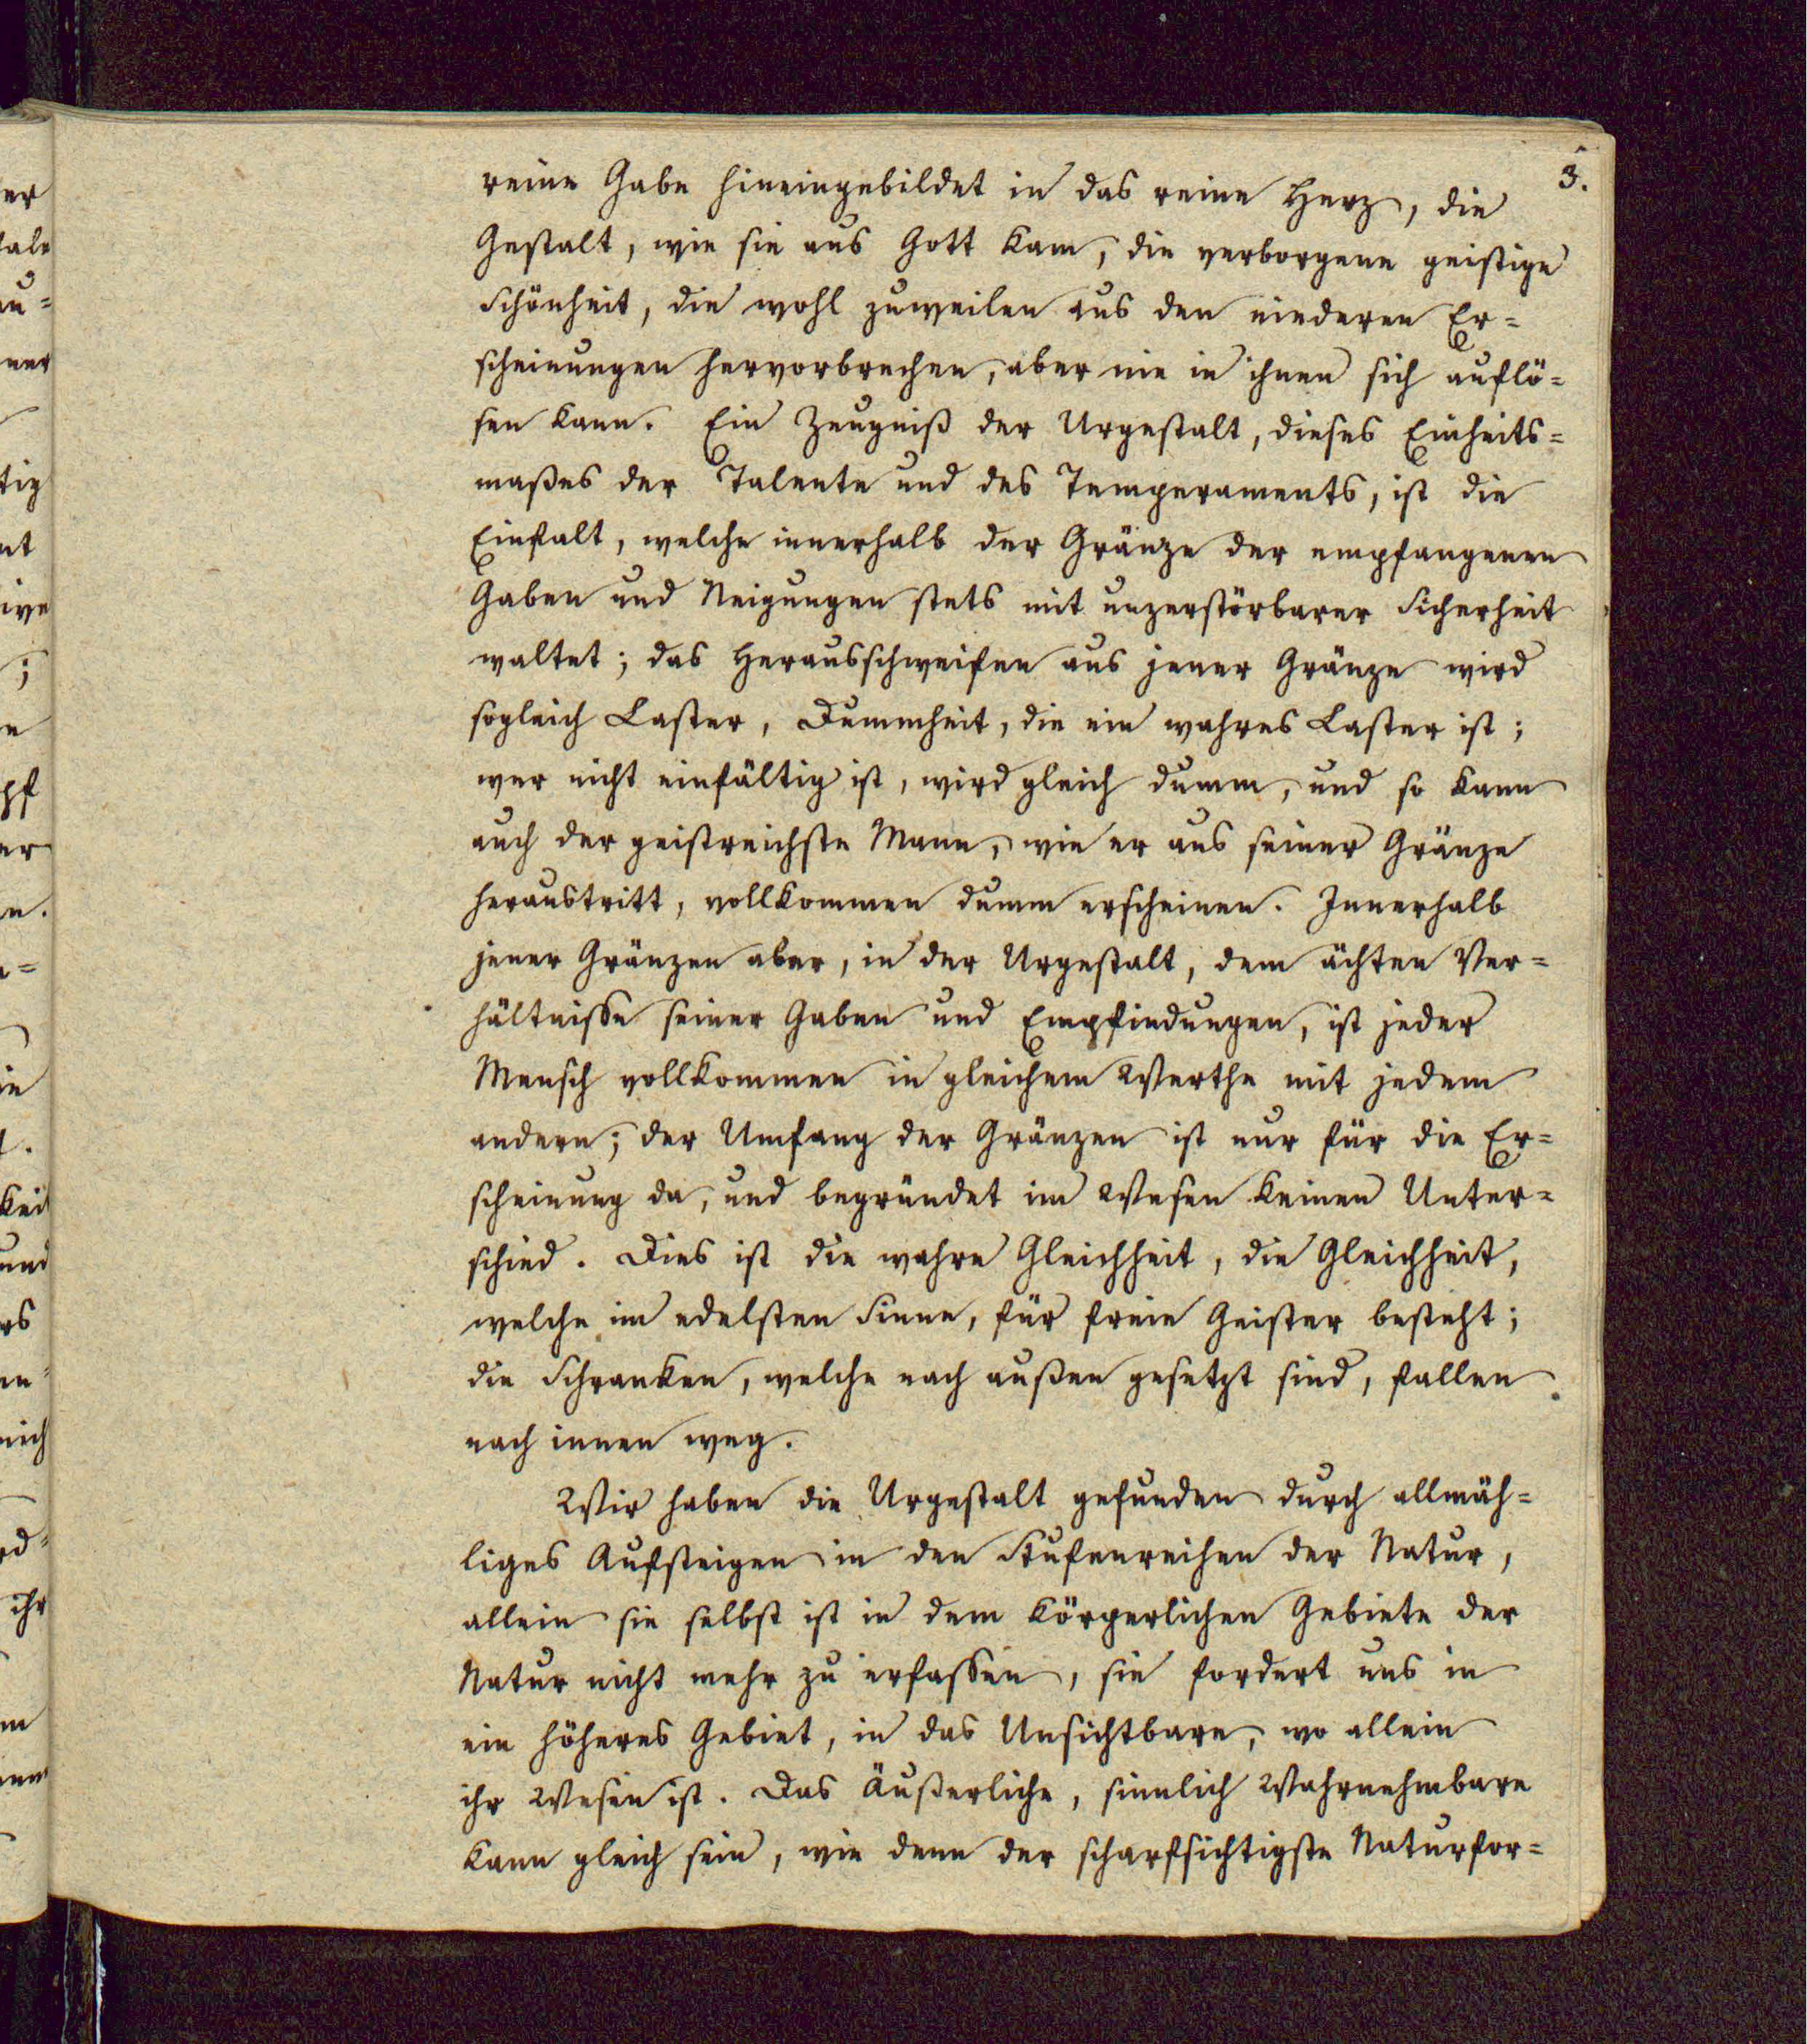 3.
reine Gabe hineingebildet in das reine Herz, die
Gestalt, wie sie aus Gott kam, die verborgene geistige
Schönheit, die wohl zuweilen aus den niederen Er=
scheinungen hervorbrechen, aber nie in ihnen sich auflö=
sen kann. Ein Zeugniß der Urgestalt, dieses Einheits=
maßes der Talente und des Temperaments, ist die
Einfalt, welche innerhalb der Gränze der empfangenen
Gaben und Neigungen stets mit unzerstörbarer Sicherheit
waltet; das Herausschweifen aus jener Gränze wird
sogleich Laster, Dummheit, die ein wahres Laster ist;
wer nicht einfältig ist, wird gleich dumm, und so kann
auch der geistreichste Mann, wie er aus seiner Gränze
heraustritt, vollkommen dumm erscheinen. Innerhalb
jener Gränzen aber, in der Urgestalt, dem ächten Ver=
hältnisse seiner Gaben und Empfindungen, ist jeder
Mensch vollkommen in gleichem Werthe mit jedem
andern; der Umfang der Gränzen ist nur für die Er=
scheinung da, und begründet im Wesen keinen Unter=
schied. Dies ist die wahre Gleichheit, die Gleichheit,
welche im edelsten Sinne, für freie Geister besteht;
die Schranken, welche nach außen gesetzt sind, fallen
nach innen weg.
Wir haben die Urgestalt gefunden durch allmäh=
liges Aufsteigen in den Stufenreihen der Natur,
allein sie selbst ist in dem körperlichen Gebiete der
Natur nicht mehr zu erfassen, sie fordert uns in
ein höheres Gebiet, in das Unsichtbare, wo allein
ihr Wesen ist. Das Äußerliche, sinnlich Wahrnehmbare
kann gleich sein, wie denn der scharfsichtigste Naturfor=